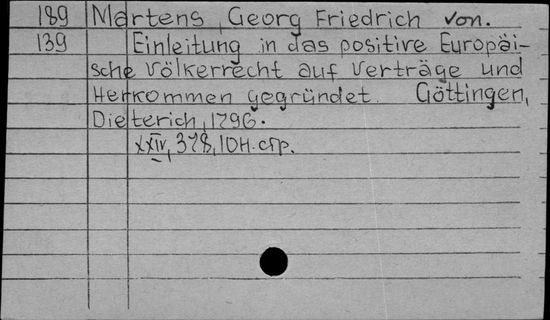 189 Martens, Georg Friedrich von.
139 Einleitung in das positive Europäi-
sche Völkerrecht auf Verträge und
Herkommen gegründet. Göttingen,
Dieterich, 1796.
XXIV, 378, 10 н. стр.